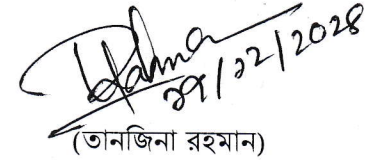 ১৭/১২/২০২৪
(তানজিনা রহমান)